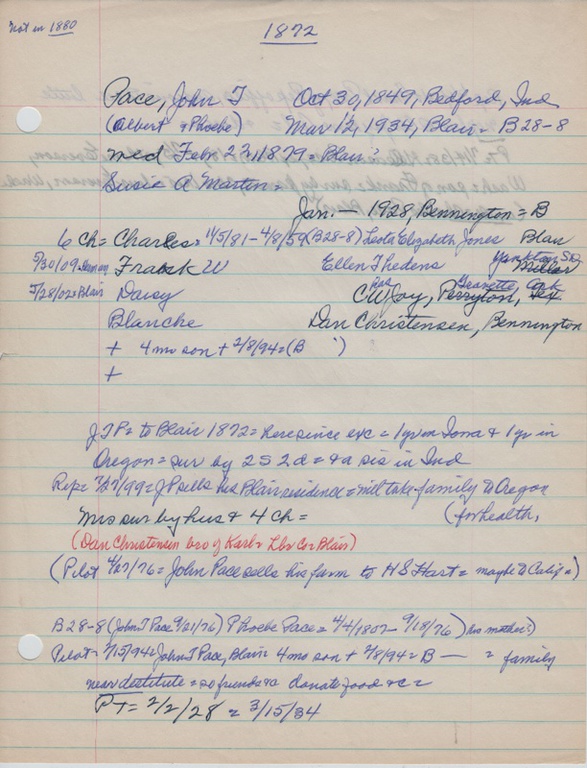 Not in 1880
1872
Pace, John T Oct 30, 1849, Bedford, Ind
(Albert & Phoebe) Mar 12, 1934, Blair = B28-8
med Feb 23, 1879 = Blair
Susie A Martin =
Jan. — 1928, Bennington = B
6 Ch = Charles = 11/5/81 - 4/8/59 (B28-8) Lesta Elizabeth Jones Blair
Yankton SD
5/30/09 Frank W Ellen Thedens Millar
Gravette Ark
5/28/02 = Blair Daisy C W Jay, Perryton, Tex
Blanche Dan Christensen, Bennington
+ 4 mo son + 2/8/94 = (B " )
+
J T P = to Blair 1872 = here since exc = 1 yr in Iowa & 1 yr in
Oregon = sur by 2 S 2 d = & a sis in Ind
Rep = 7/27/99 = J P sells his Blair residence = will take family to Oregon
Mrs sur by hus & 4 ch = (for health,
(Dan Christensen bro of Karl = Lbr Co = Blair)
(Pilot 4/27/76 = John Pace sells his farm to H S Hart = maybe to Calif =)
B28-8 (John T Pace 9/21/76) Phoebe Pace = 4/4/1807 - 9/18/76) his mother?)
Pilot = 2/15/94 = John T Pace, Blair 4 mo son + 2/8/94 = B — = family
near destitute = so friends donate food & c =
P T = 2/2/28 = 3/15/34